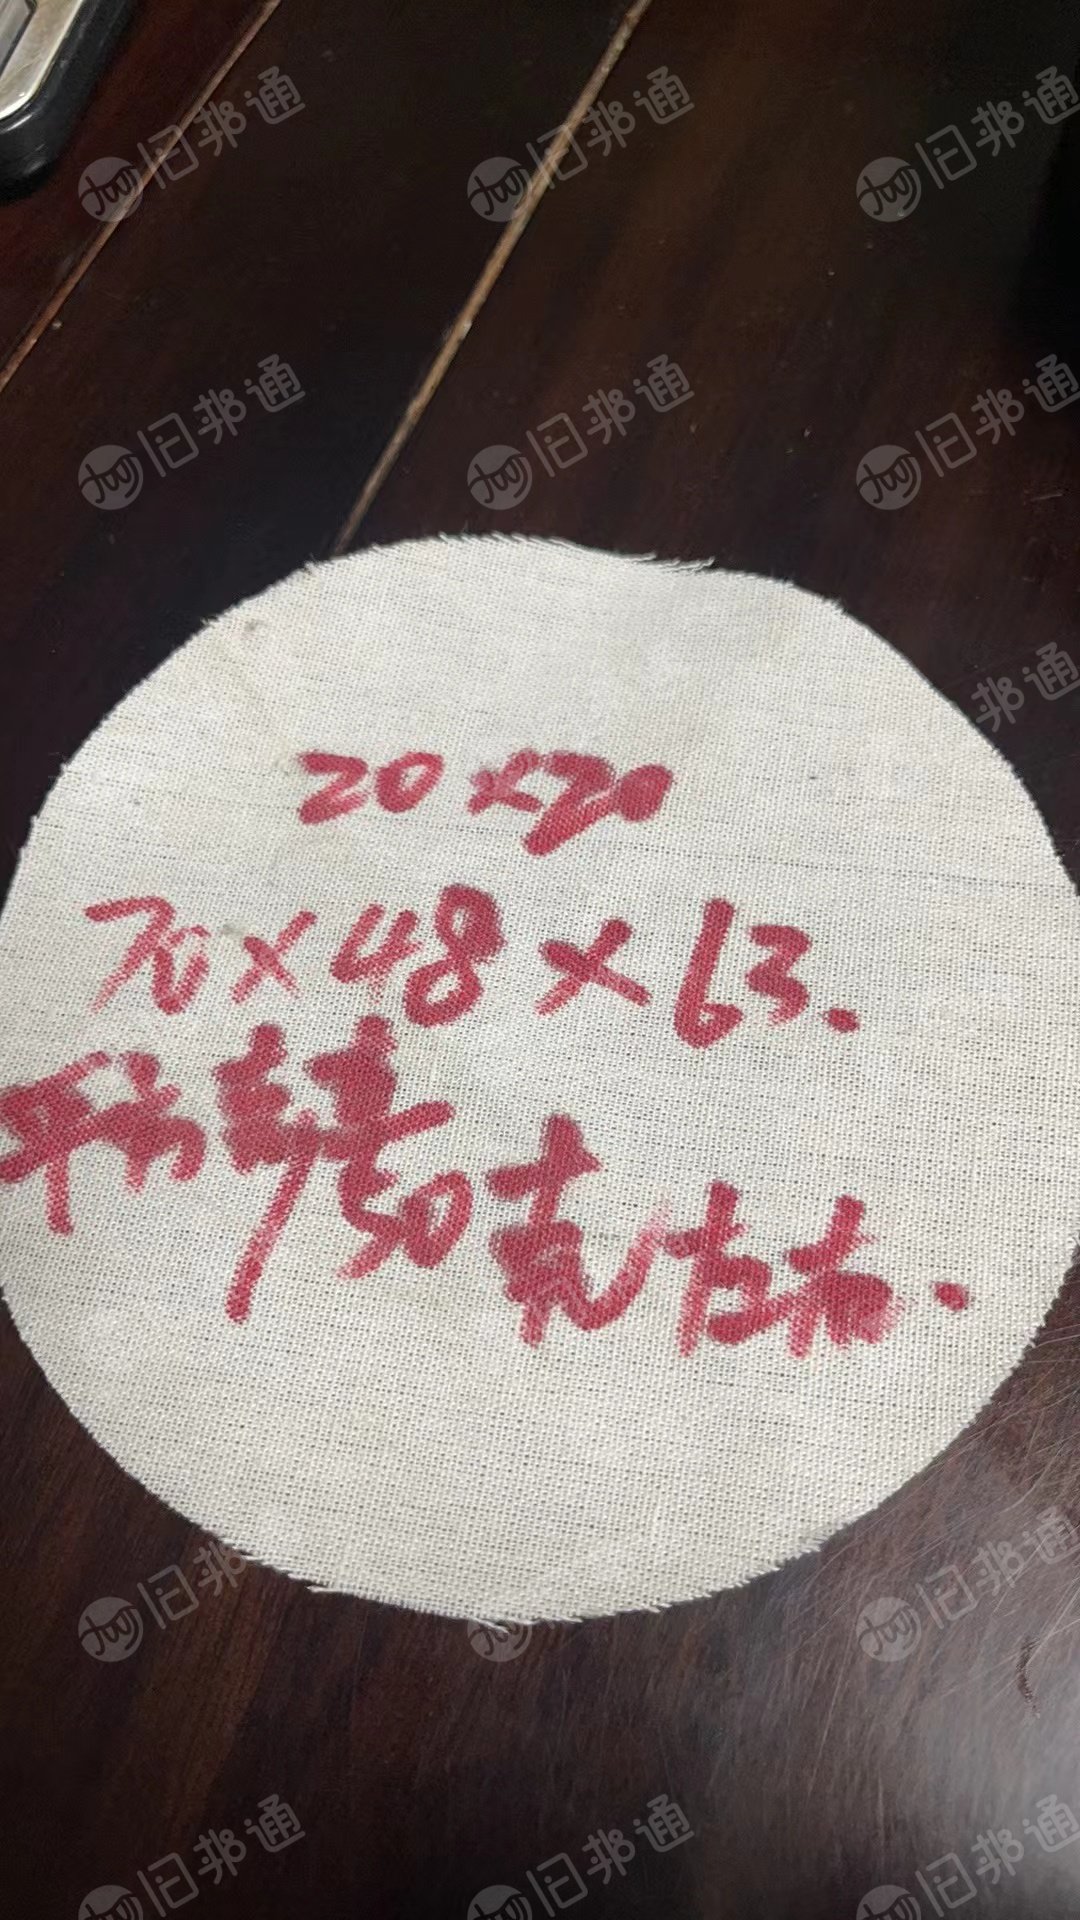 20×20
70×48×63.
平方 克左右.
旧邦通
旧邦通
旧邦通
旧邦通
旧邦通
旧邦通
邦通
旧邦通
旧邦通
旧邦通
旧邦通
旧邦通